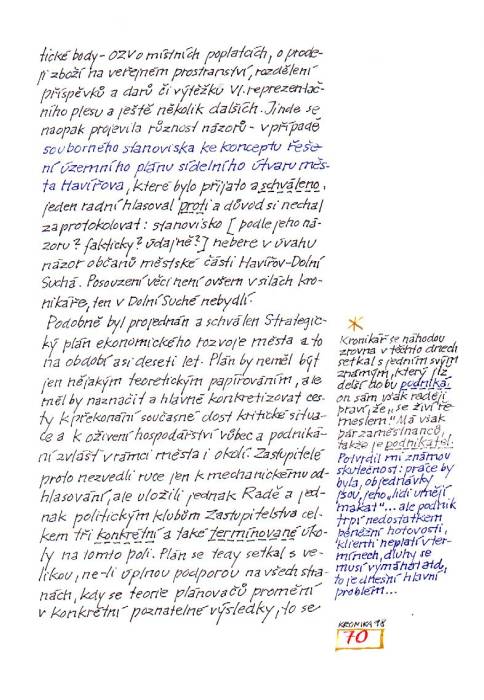 tické body - OZV o místních poplatcích, o prode-
ji zboží na veřejném prostranství, rozdělení
příspěvků a darů či výtěžku VI. reprezentač-
ního plesu a ještě několik dalších. Jinde se
naopak projevila různost názorů - v případě
souborného stanoviska ke konceptu řeše-
ní územního plánu sídelního útvaru měs-
ta Havířova, které bylo přijato a schváleno,
jeden radní hlasoval proti a důvod si nechal
zaprotokolovat: stanovisko [podle jeho ná-
zoru? fakticky? údajně?] nebere v úvahu
názor občanů městské části Havířov-Dolní
Suchá. Posouzení věci není ovšem v silách kro-
nikáře, ten v Dolní Suché nebydlí.
Podobně byl projednán a schválen Strategic-
ký plán ekonomického rozvoje města a to
na období asi deseti let. Plán by neměl být
jen nějakým teoretickým papírováním, ale
měl by naznačit a hlavně konkretizovat ces-
ty k překonání současné dost kritické situa-
ce a k oživení hospodářství vůbec a podniká-
ní zvlášť v rámci města i okolí. Zastupitelé
proto nezvedli ruce jen k mechanickému od-
hlasování, ale uložili jednak Radě a jed-
nak politickým klubům Zastupitelstva cel-
kem tři konkrétní a také termínované úko-
ly na tomto poli. Plán se tedy setkal s ve-
likou, ne-li úplnou podporou na všech stra-
nách, kdy se teorie plánovačů promění
v konkrétní poznatelné výsledky, to se
*
Kronikář se náhodou
zrovna v těchto dnech
setkal s jedním svým
známým, který již
delší dobu podniká.
on sám však raději
praví, že „se živí ře-
meslem." Má však
pár zaměstnanců,
takže je podnikatel.
Potvrdil mi známou
skutečnost: práce by
byla, objednávky
jsou, jeho „lidi umějí
makat"... ale podnik
trpí nedostatkem
běžnění hotovosti,
klienti neplatí v ter-
mínech, dluhy se
musí vymáhat atd,
to je dnešní hlavní
problém...
KRONIKA 98
70